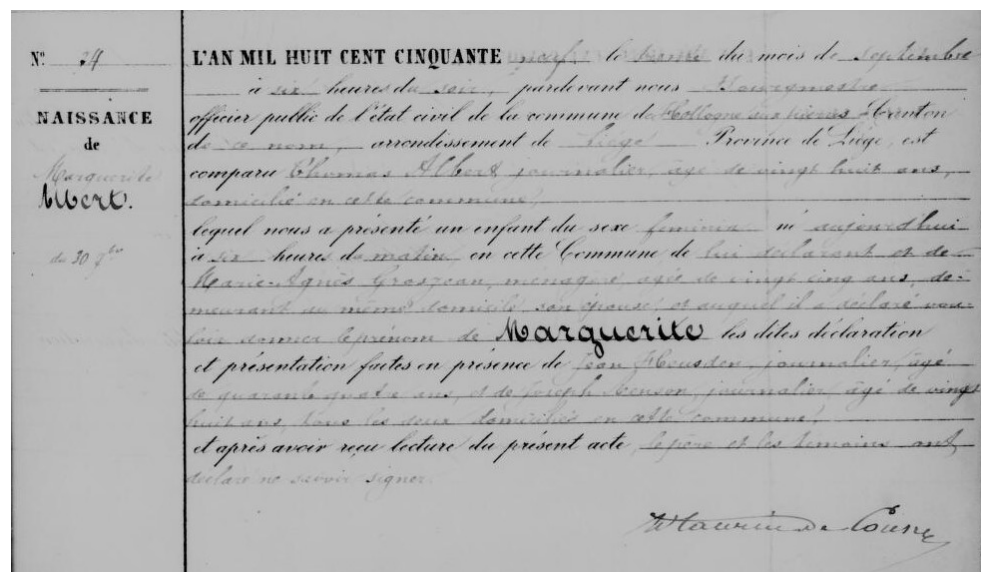 Nº 34
NAISSANCE
de
Marguerite
Albert.
du 30 7bre
L'AN MIL HUIT CENT CINQUANTE neuf le trente du mois de Septembre
à six heures du soir, pardevant nous Bourgmestre
officier public de l'état civil de la commune de Hollogne aux Pierres Canton
de ce nom, arrondissement de Liége Province de Liége, est
comparu Thomas Albert, journalier, agé de vingt huit ans,
domicilié en cette commune,
lequel nous a présenté un enfant du sexe feminin né aujourd'hui
à six heures du matin en cette Commune de lui déclarant et de
Marie-Agnès Grosjean, ménagère, agée de vingt cinq ans, de-
meurant au même domicile son épouse, et auquel il a déclaré vou-
loir donner le prénom de Marguerite les dites déclaration
et présentation faites en présence de Jean Heusden, journalier, âgé
de quarante quatre ans, et de Joseph journalier, âgé de vingt
huit ans, tous les deux domiciliés en cette commune,
et après avoir reçu lecture du présent acte, le père et les témoins ont
déclaré ne savoir signer.
de